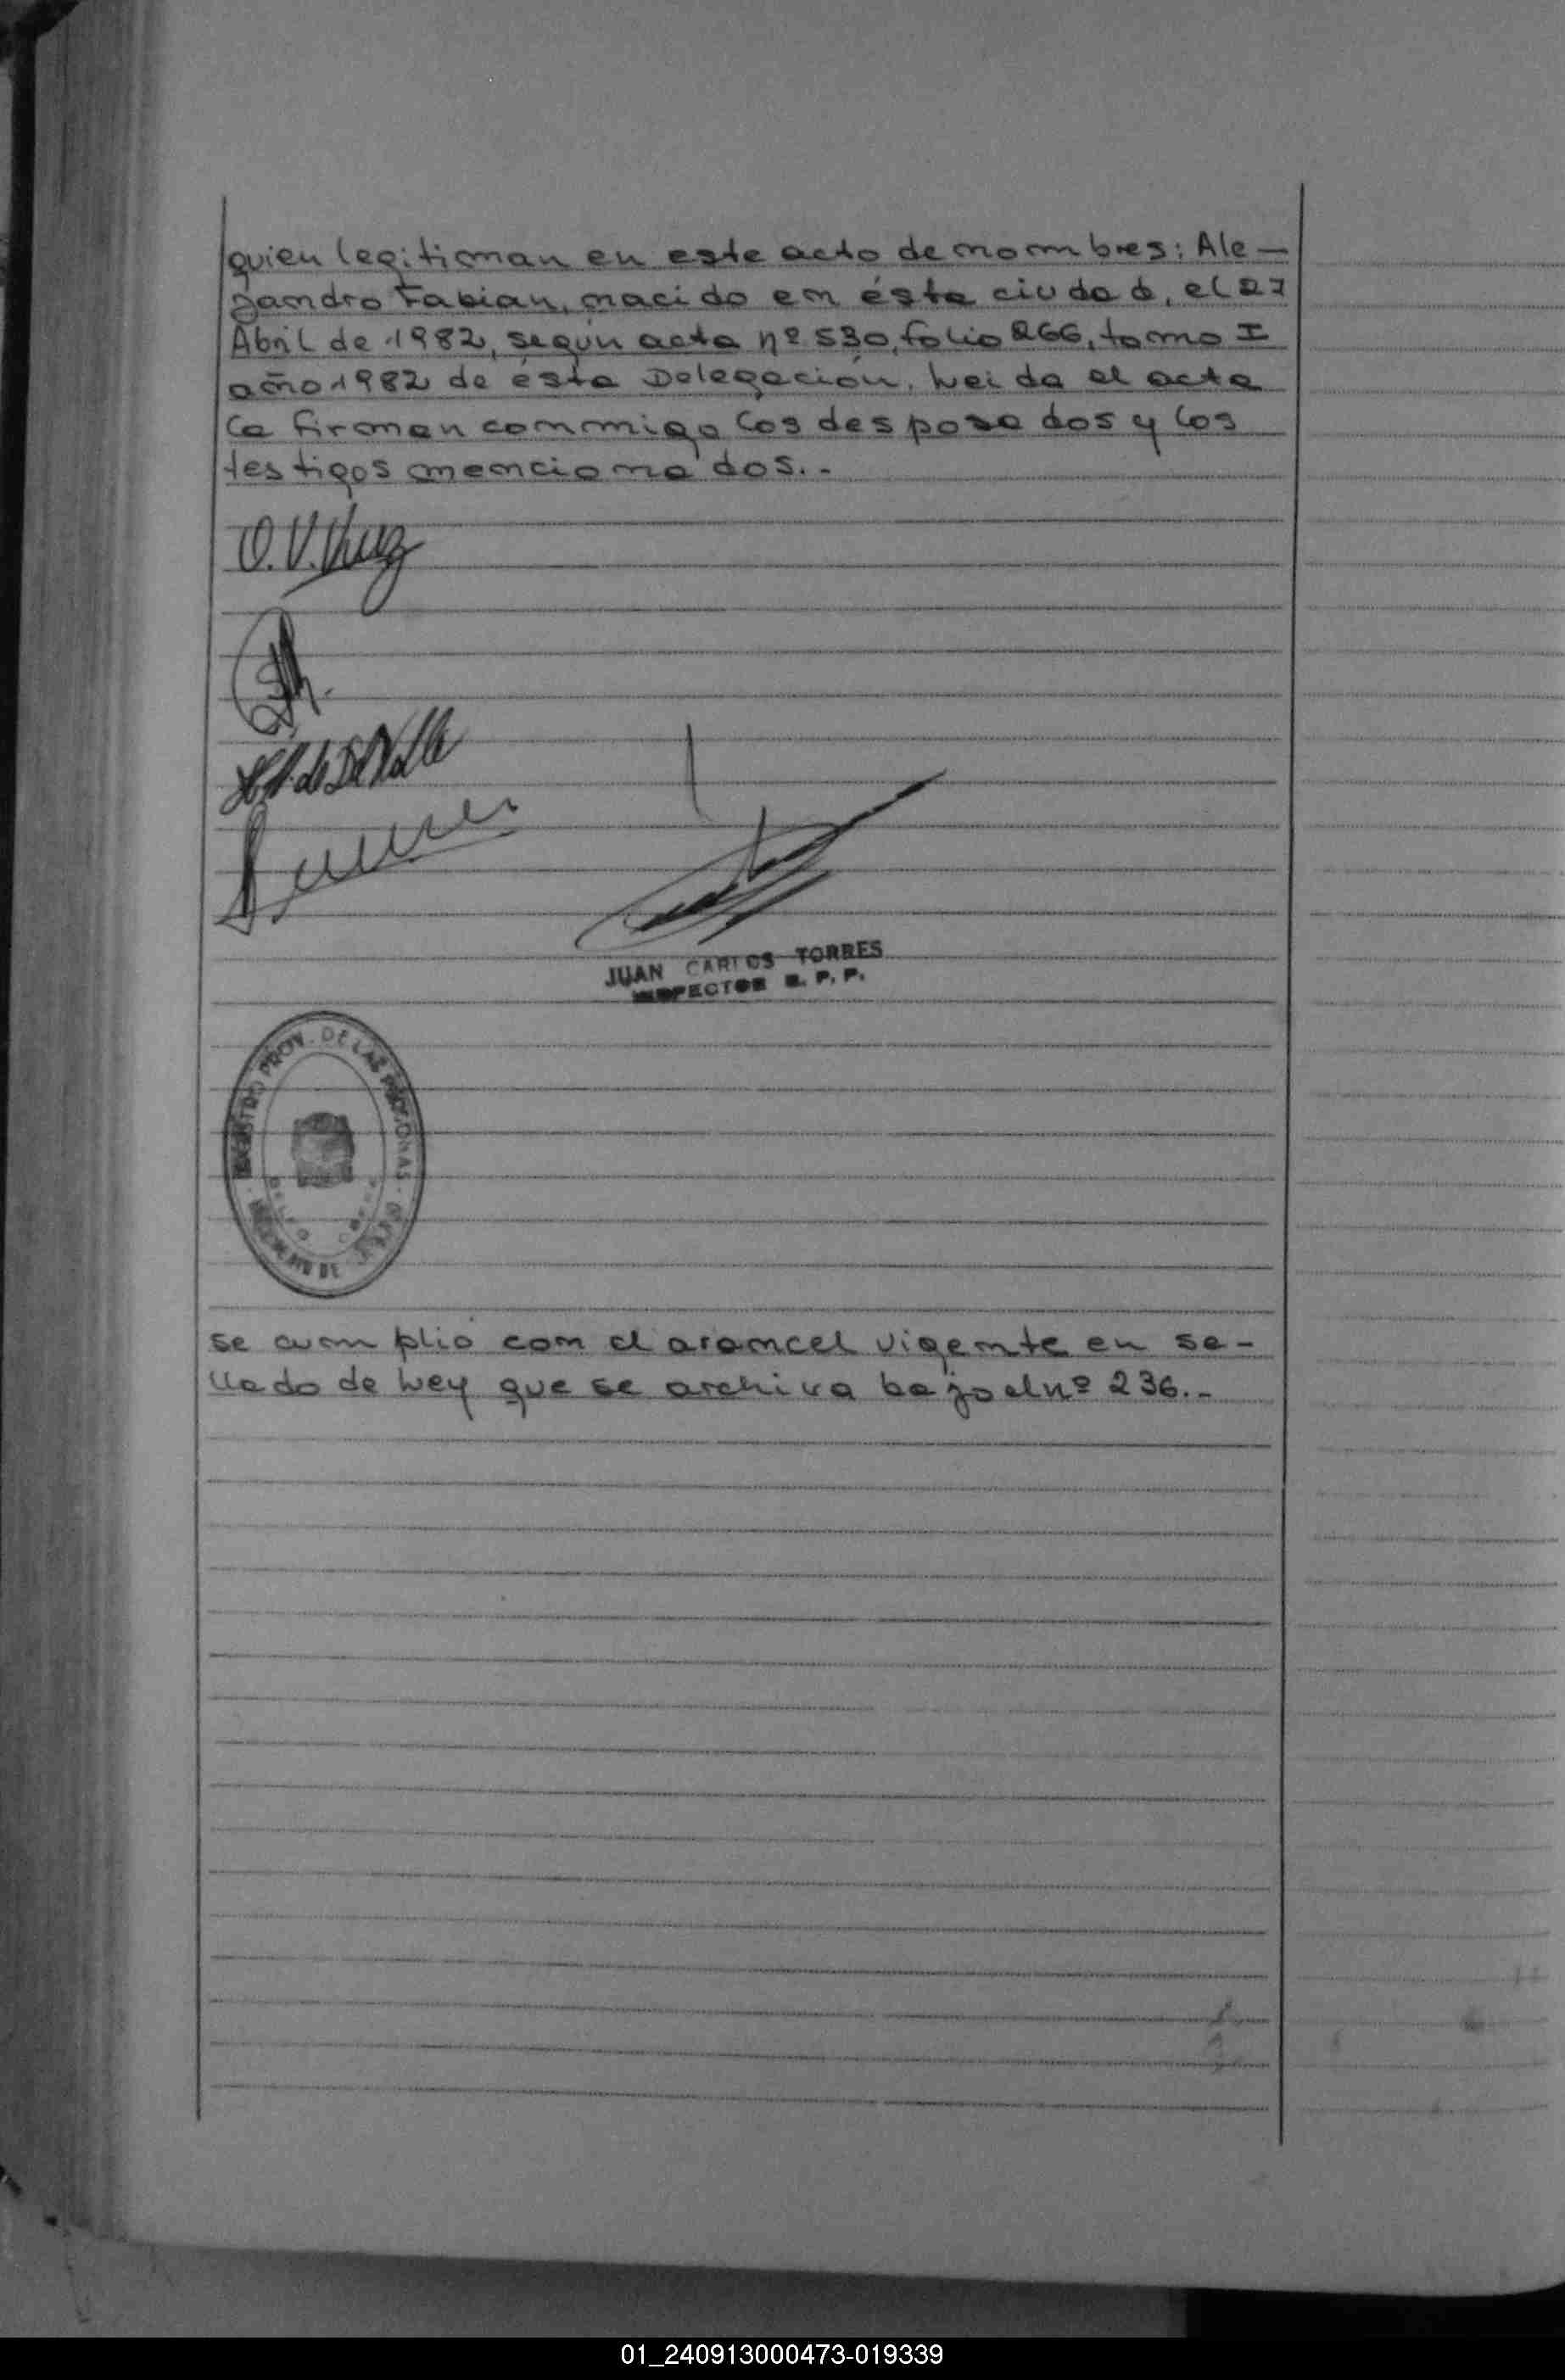 quien legitiman en este acto de nombres: Ale-
jandro Fabian, nacido en ésta ciudad, el 27
Abril de 1982, según acta nº 530, folio 266, tomo I
año 1982 de ésta Delegación. Leida el acta
la firman conmigo los desposados y los
testigos mencionados..-
JUAN CARLOS TORRES
INSPECTOR R. P. P.
REGISTRO PROV. DE LAS PERSONAS
se cumplió con el arancel vigente en se-
llado de Ley que se archiva bajo el nº 236.-
01_240913000473-019339